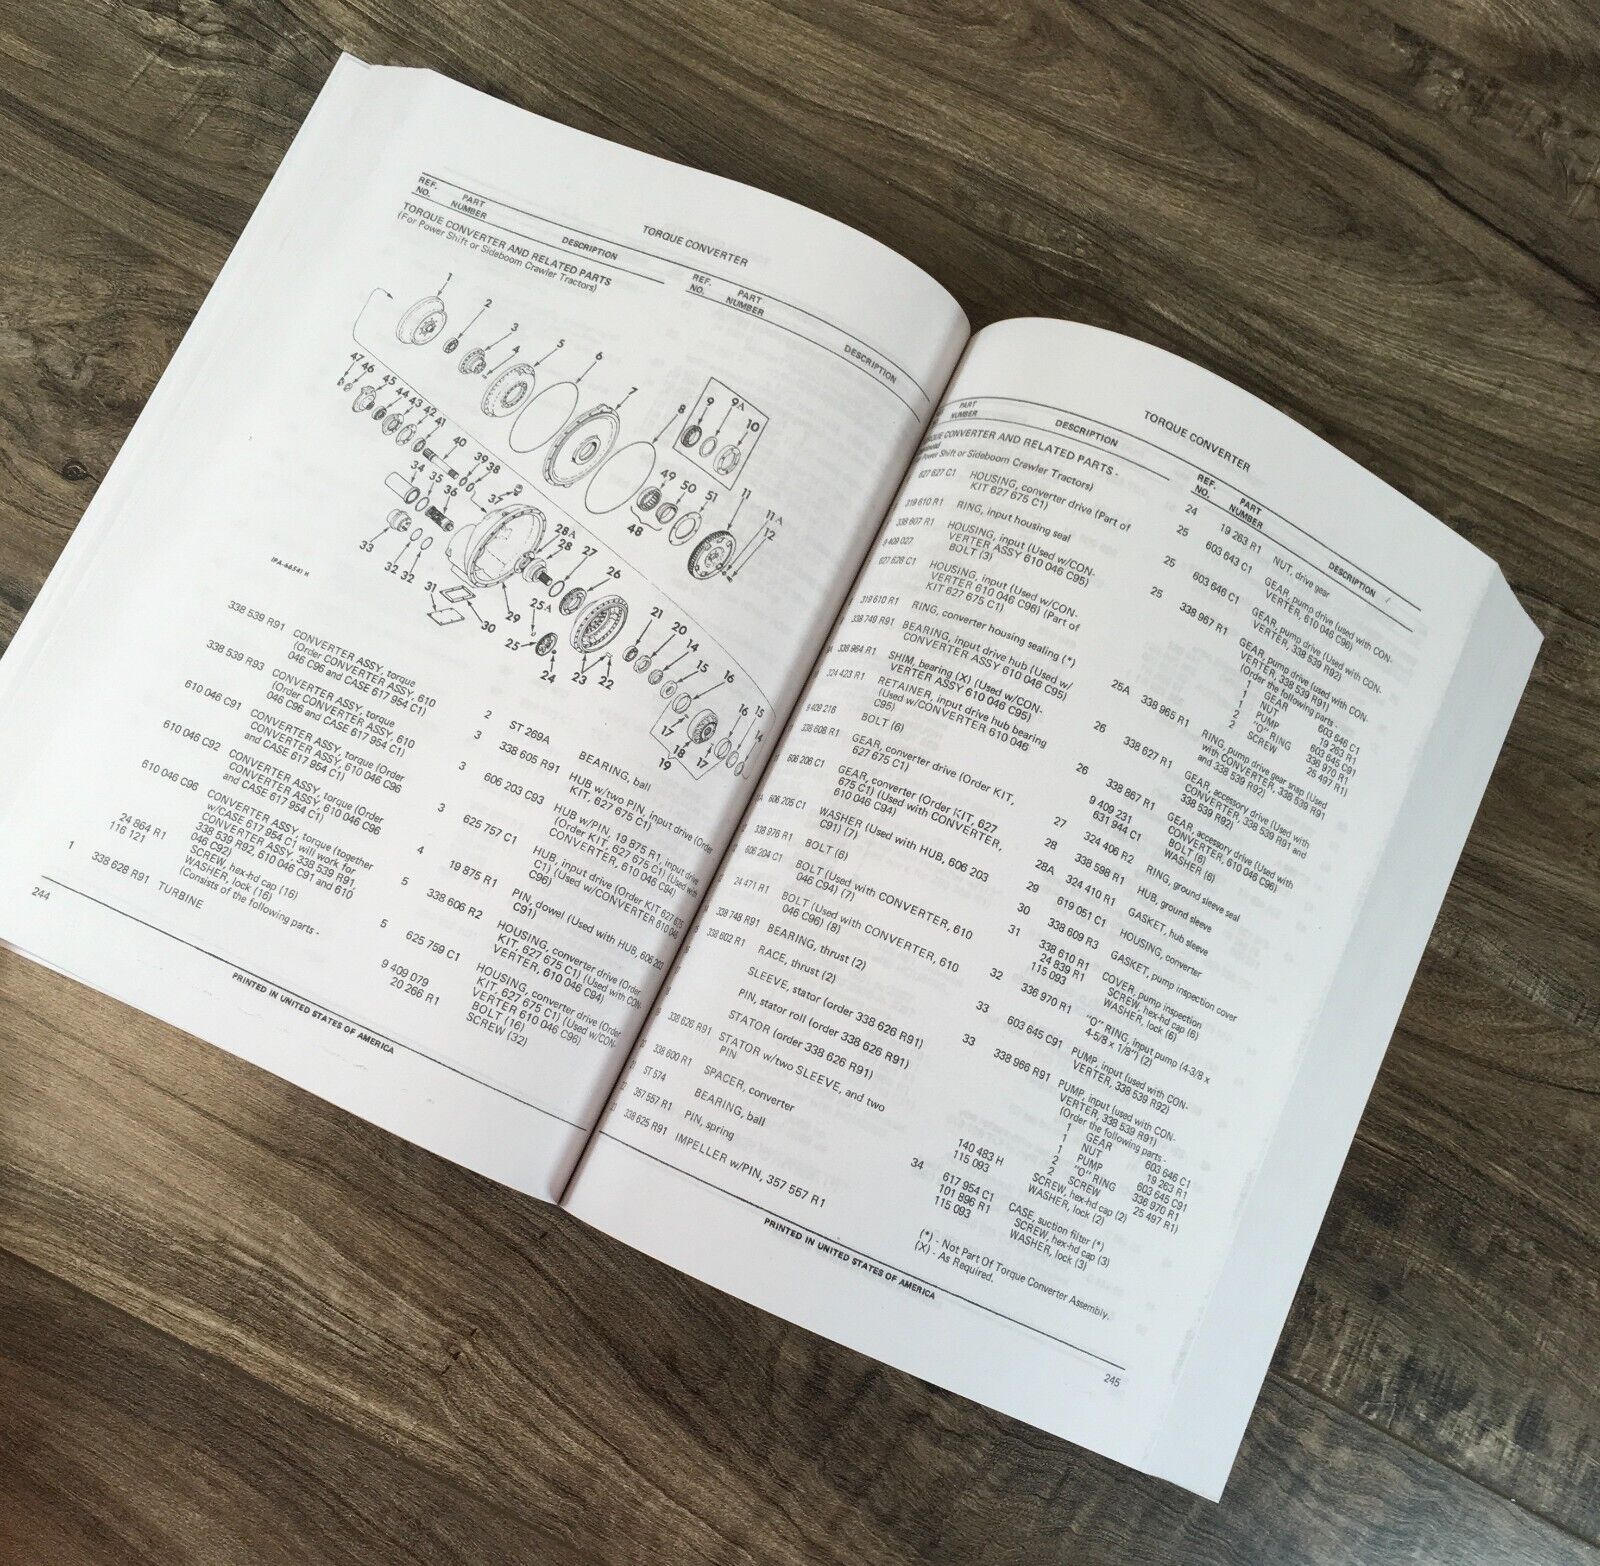 TORQUE CONVERTER
REF. NO. PART NUMBER DESCRIPTION REF. NO. PART NUMBER DESCRIPTION
TORQUE CONVERTER AND RELATED PARTS
(For Power Shift or Sideboom Crawler Tractors)
1 2 3 4 5 6 7 8 9 9A 10
47 46 45 44 43 42 41 40 39 38 37
49 50 51 11 11A 12
34 35 36 48
33 32 32 31 30 29 28A 28 27 26
25A 25 24 23 22 21 20 14 15 16
17 18 19 17 16 15 14
338 539 R91 CONVERTER ASSY, torque
(Order CONVERTER ASSY, 610
046 C96 and CASE 617 954 C1)
338 539 R93 CONVERTER ASSY, torque
(Order CONVERTER ASSY, 610
046 C96 and CASE 617 954 C1)
610 046 C91 CONVERTER ASSY, torque (Order
CONVERTER ASSY, 610 046 C96
and CASE 617 954 C1)
610 046 C92 CONVERTER ASSY, torque (Order
CONVERTER ASSY, 610 046 C96
and CASE 617 954 C1)
610 046 C96 CONVERTER ASSY, torque (together
w/CASE 617 954 C1 will work for
CONVERTER ASSY 338 539 R91,
338 539 R92, 610 046 C91 and 610
046 C92)
24 864 R1 SCREW, hex-hd cap (16)
116 121 WASHER, lock (16)
(Consists of the following parts -
1 338 628 R91 TURBINE
2 ST 269A BEARING, ball
3 338 605 R91 HUB w/two PIN, input drive (Order
KIT, 627 675 C1)
3 606 203 C93 HUB w/PIN, 19 875 R1, input drive
(Order KIT, 627 675 C1) (Used with
CONVERTER, 610 046 C94)
3 625 757 C1 HUB, input drive (Order KIT 627 675
C1) (Used w/CONVERTER 610 046
C96)
4 19 875 R1 PIN, dowel (Used with HUB, 606 203
C91)
5 338 606 R2 HOUSING, converter drive (Order
KIT, 627 675 C1) (Used with CON-
VERTER, 610 046 C94)
5 625 759 C1 HOUSING, converter drive (Order
KIT, 627 675 C1) (Used w/CON-
VERTER 610 046 C96)
9 409 079 BOLT (16)
20 266 R1 SCREW (32)
244
PRINTED IN UNITED STATES OF AMERICA
TORQUE CONVERTER
PART NUMBER DESCRIPTION REF. NO. PART NUMBER DESCRIPTION
CONVERTER AND RELATED PARTS -
Power Shift or Sideboom Crawler Tractors)
627 627 C1 HOUSING, converter drive (Part of
KIT 627 675 C1)
319 610 R1 RING, input housing seal
338 607 R1 HOUSING, input (Used w/CON-
VERTER ASSY 610 046 C95)
9 409 027 BOLT (3)
627 628 C1 HOUSING, input (Used w/CON-
VERTER 610 046 C96) (Part of
KIT 627 675 C1)
319 610 R1 RING, converter housing sealing (*)
338 749 R91 BEARING, input drive hub (Used w/
CONVERTER ASSY 610 046 C95)
338 964 R1 SHIM, bearing (X) (Used w/CON-
VERTER ASSY 610 046 C95)
324 423 R1 RETAINER, input drive hub bearing
(Used w/CONVERTER 610 046
C95)
9 409 216 BOLT (6)
338 608 R1 GEAR, converter drive (Order KIT,
627 675 C1)
606 206 C1 GEAR, converter (Order KIT, 627
675 C1) (Used with CONVERTER,
610 046 C94)
606 205 C1 WASHER (Used with HUB, 606 203
C91) (7)
338 976 R1 BOLT (6)
606 204 C1 BOLT (Used with CONVERTER, 610
046 C94) (7)
24 471 R1 BOLT (Used with CONVERTER, 610
046 C96) (8)
338 748 R91 BEARING, thrust (2)
338 602 R1 RACE, thrust (2)
SLEEVE, stator (order 338 626 R91)
PIN, stator roll (order 338 626 R91)
STATOR (order 338 626 R91)
338 626 R91 STATOR w/two SLEEVE, and two
PIN
338 600 R1 SPACER, converter
ST 574 BEARING, ball
357 557 R1 PIN, spring
338 625 R91 IMPELLER w/PIN, 357 557 R1
24 19 263 R1 NUT, drive gear
25 603 643 C1 GEAR, pump drive (used with CON-
VERTER, 610 046 C96)
25 603 646 C1 GEAR, pump drive (Used with CON-
VERTER, 338 539 R92)
25 338 967 R1 GEAR, pump drive (used with CON-
VERTER, 338 539 R91)
(Order the following parts -
1 GEAR 603 646 C1
1 NUT 19 263 R1
2 PUMP 603 645 C91
2 "O" RING 336 970 R1
2 SCREW 25 497 R1)
25A 338 965 R1 RING, pump drive gear snap (Used
with CONVERTER, 338 539 R91
and 338 539 R92)
26 338 627 R1 GEAR, accessory drive (Used with
CONVERTER, 338 539 R91 and
338 539 R92)
26 338 867 R1 GEAR, accessory drive (Used with
CONVERTER, 610 046 C96)
9 409 231 BOLT (6)
631 944 C1 WASHER (6)
27 324 406 R2 RING, ground sleeve seal
28 338 598 R1 HUB, ground sleeve
28A 324 410 R1 GASKET, hub sleeve
29 619 051 C1 HOUSING, converter
30 338 609 R3 GASKET, pump inspection cover
31 338 610 R1 COVER, pump inspection
24 839 R1 SCREW, hex-hd cap (6)
115 093 WASHER, lock (6)
32 336 970 R1 "O" RING, input pump (4-3/8 x
4-5/8 x 1/8") (2)
33 603 645 C91 PUMP, input (used with CON-
VERTER, 338 539 R92)
33 338 966 R91 PUMP, input (used with CON-
VERTER, 338 539 R91)
(Order the following parts -
1 GEAR 603 646 C1
1 NUT 19 263 R1
2 PUMP 603 645 C91
2 "O" RING 336 970 R1
2 SCREW 25 497 R1)
140 483 H SCREW, hex-hd cap (2)
115 093 WASHER, lock (2)
34 617 954 C1 CASE, suction filter (*)
101 896 R1 SCREW, hex-hd cap (3)
115 093 WASHER, lock (3)
(*) - Not Part Of Torque Converter Assembly.
(X) - As Required.
PRINTED IN UNITED STATES OF AMERICA
245